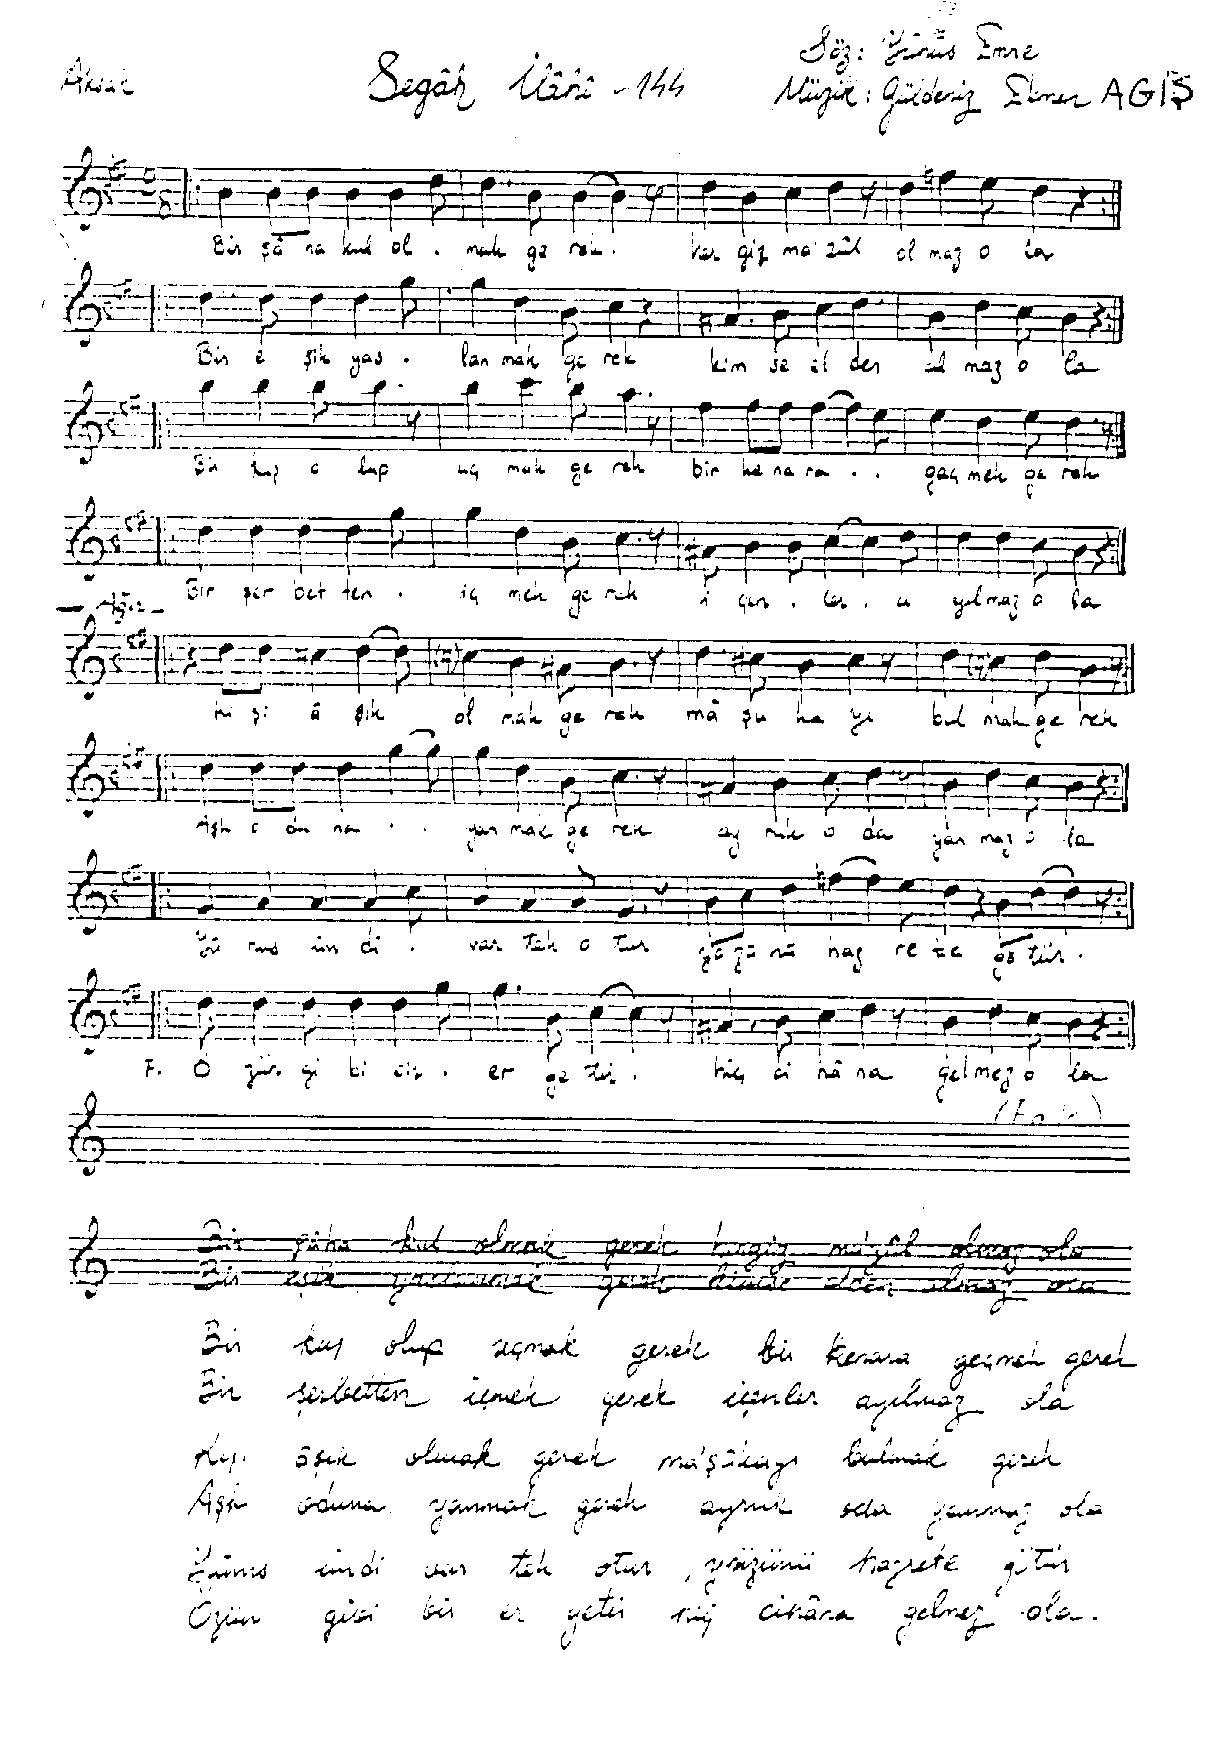 Söz: Yûnus Emre
Aksak Segâh İlâhî - 144 Müzik: Güldeniz Ekmen AGİŞ
9
8
Bir şâ ha kul ol . mak ge rek . her giz ma' zûl ol maz o la
Bir e şik yas . lan mak ge rek kim se el den al maz o la
Bir kuş o lup uç mak ge rek bir ke na ra . . geç mek ge rek
Bir şer bet ten . iç mek ge rek i çen . ler . a yılmaz o la
ki şi â şık ol mak ge rek mâ şu ka yı bul mak ge rek
Aşk o du na . . yan mak ge rek ay rık o da yan maz o la
Yû nus im di . var tek o tur yü zü nü haz re te gö tür .
F. Ö zün gi bi bir . er ge tir . hiç ci hâ na gelmez o la
Bir şâha kul olmak gerek hergiz ma'zûl olmaz ola
Bir eşik yaslanmak gerek kimse elden almaz ola
Bir kuş olup uçmak gerek bir kenara geçmek gerek
Bir şerbetten içmek gerek içenler ayılmaz ola
Kişi âşık olmak gerek ma'şûkayı bulmak gerek
Aşk oduna yanmak gerek ayruk oda yanmaz ola
Yûnus imdi var tek otur, yüzünü hazrete götür
Özün gibi bir er yetir hiç cihâna gelmez ola.